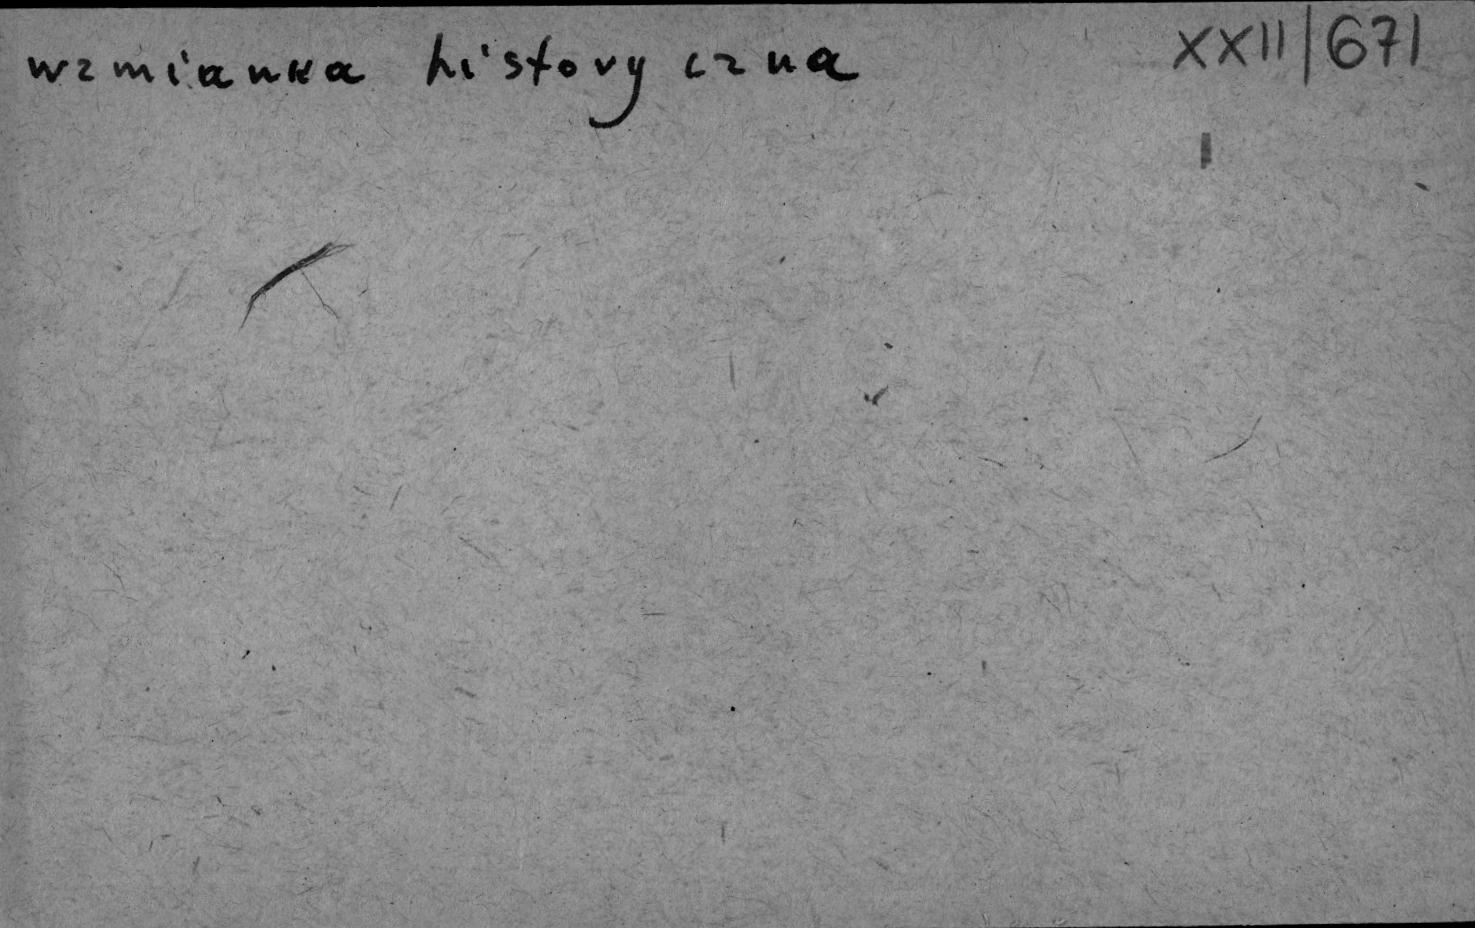 wzmianka historyczna XXII/671